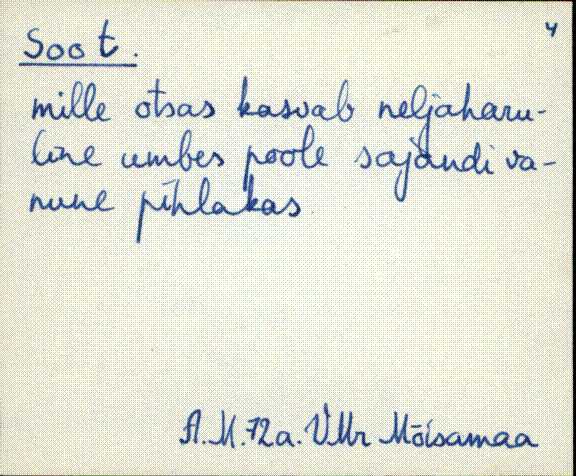 4
Soot.
mille otsas kasvab neljaharu-
line umbes poole sajandi va-
nune pihlakas
A.M. 72a. VMr Mõisamaa